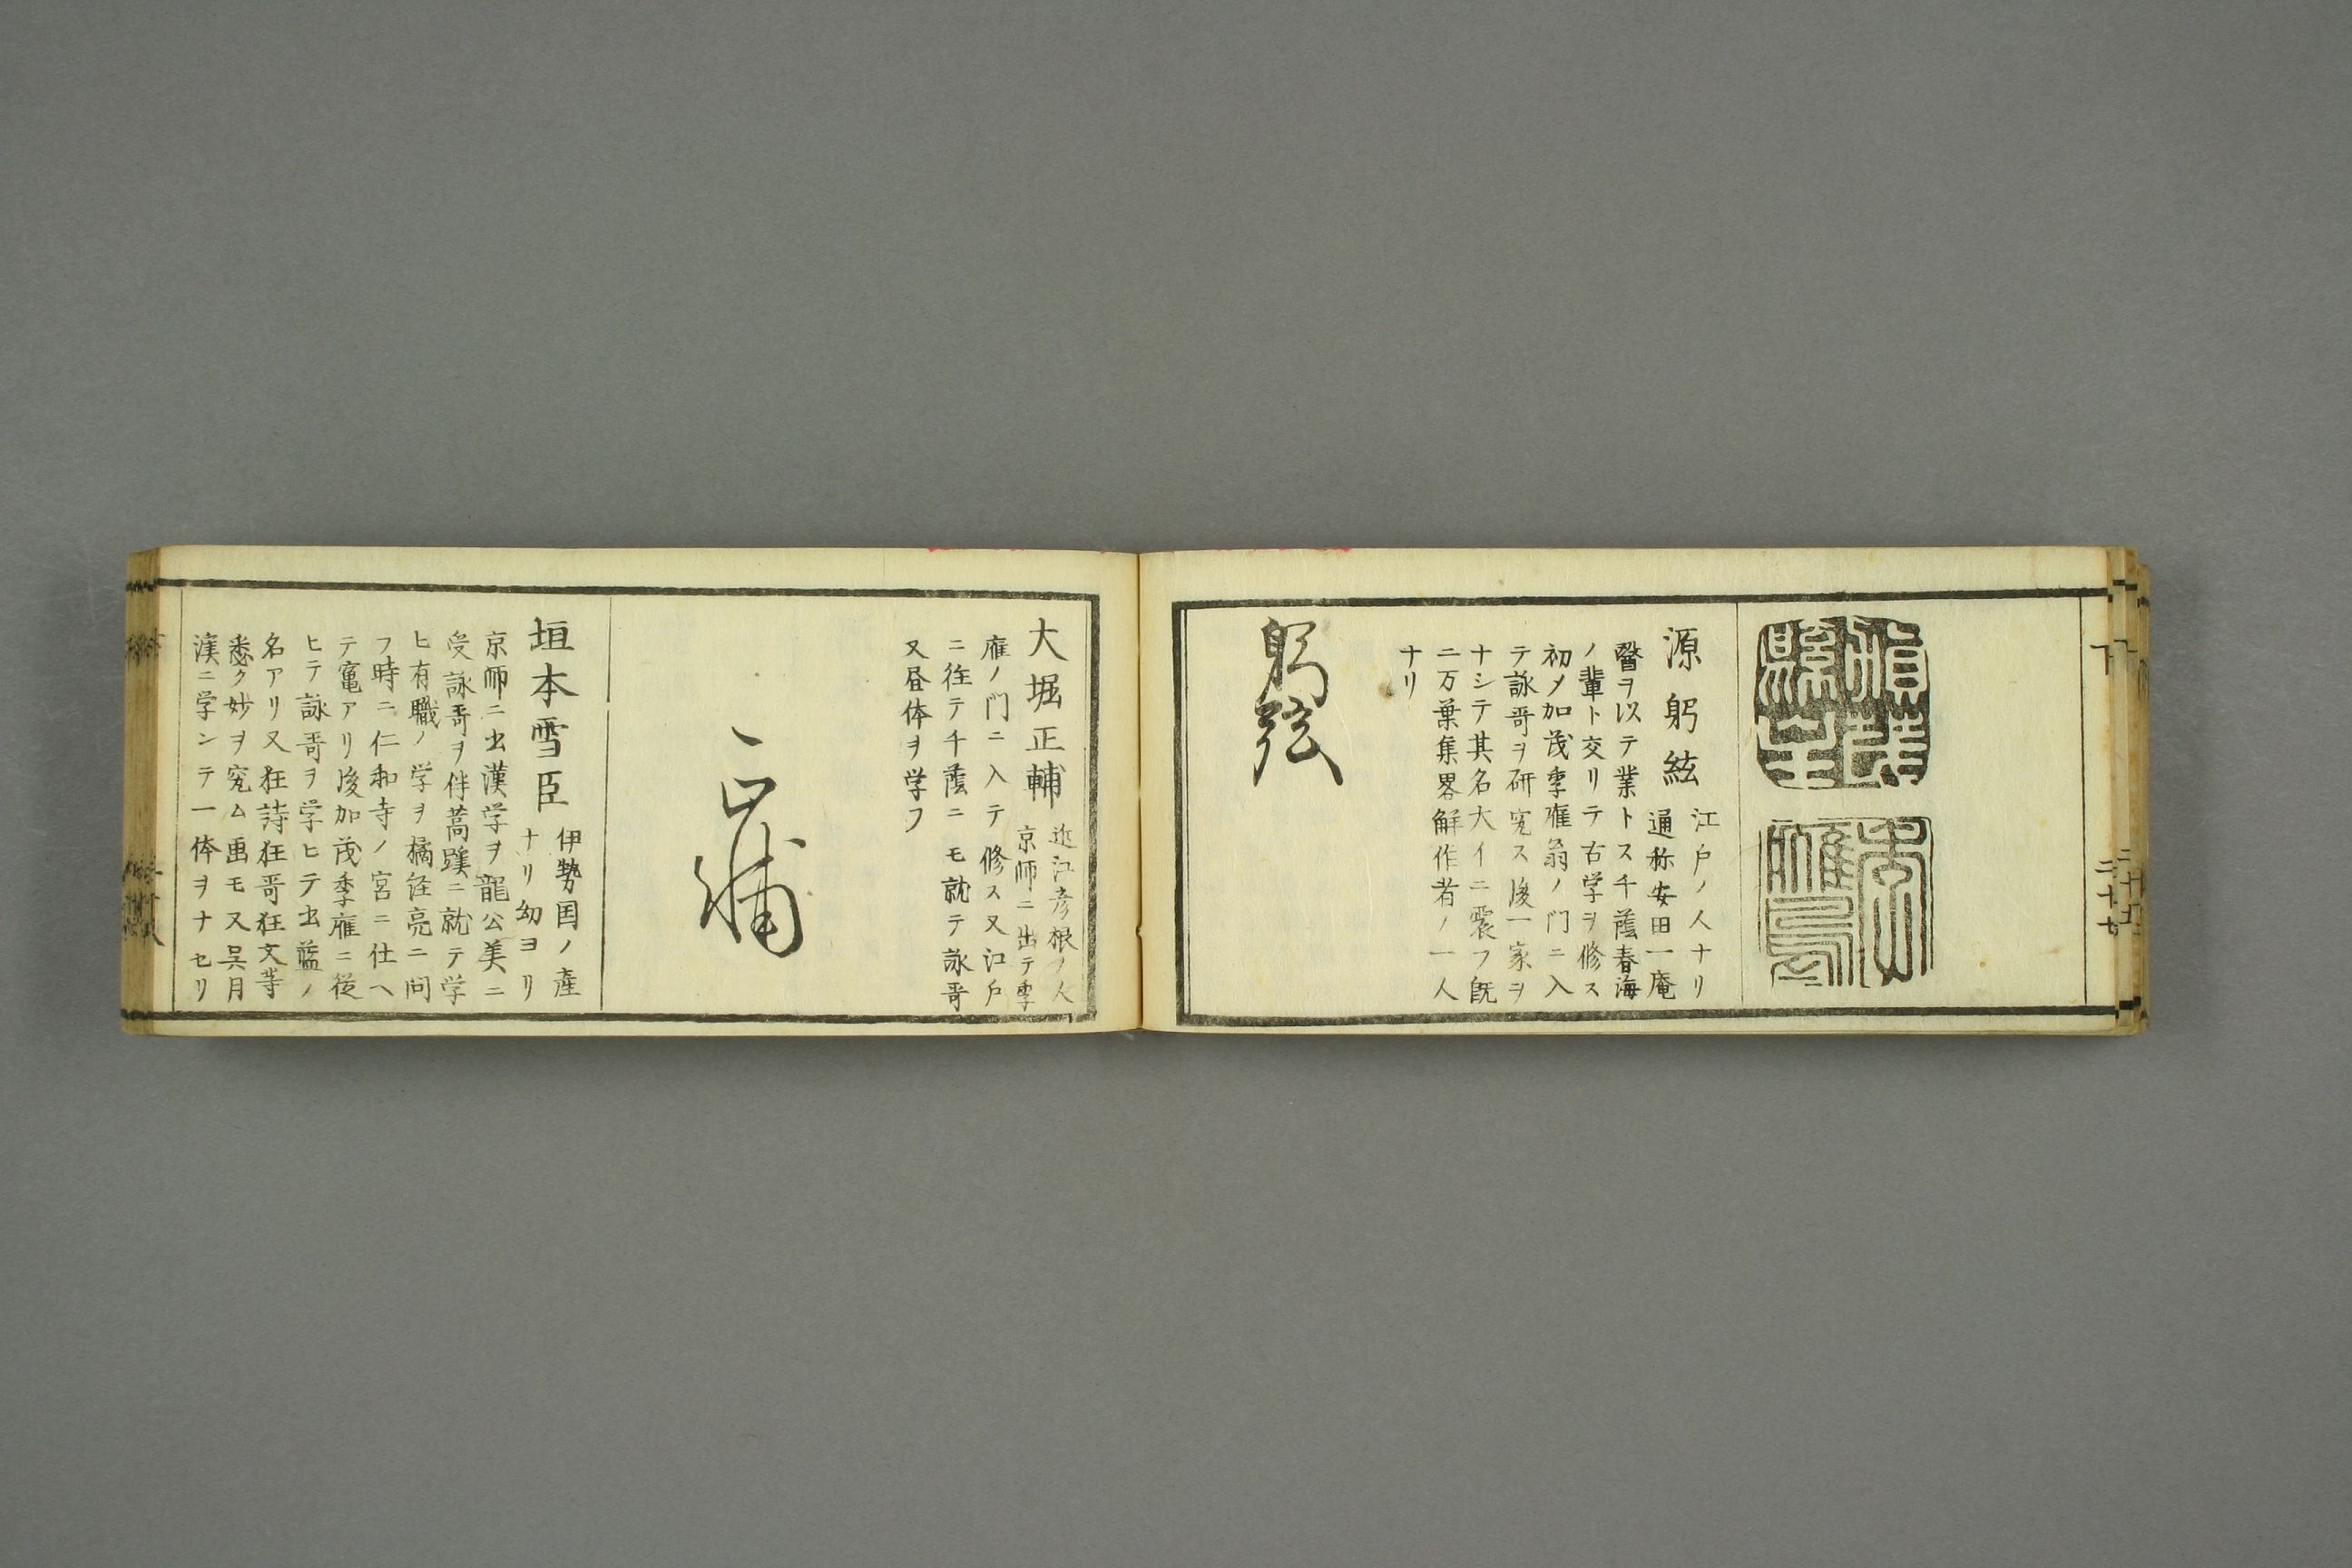 下
二十七
源躬絃
江戸ノ人ナリ
通称安田一庵
醫ヲ以テ業トス千蔭春海
ノ輩ト交リテ古学ヲ修ス
初メ加茂季鷹翁ノ門ニ入
テ詠哥ヲ研究ス後一家ヲ
ナシテ其名大イニ震フ既
ニ万葉集畧解作者ノ一人
ナリ
躬弦
大堀正輔
近江彦根ノ人
京師ニ出テ季
鷹ノ門ニ入テ修ス又江戸
ニ往テ千蔭ニモ就テ詠哥
又昼体ヲ学フ
正輔
垣本雪臣
伊勢国ノ産
ナリ幼ヨリ
京師ニ出漢学ヲ龍公美ニ
受詠哥ヲ伴蒿蹊ニ就テ学
ヒ有職ノ学ヲ橘経亮ニ問
フ時ニ仁和寺ノ宮ニ仕ヘ
テ寵アリ後加茂季鷹ニ従
ヒテ詠哥ヲ学ヒテ出藍ノ
名アリ又狂詩狂哥狂文等
悉ク妙ヲ究ム画モ又呉月
渓ニ学ンテ一体ヲナセリ